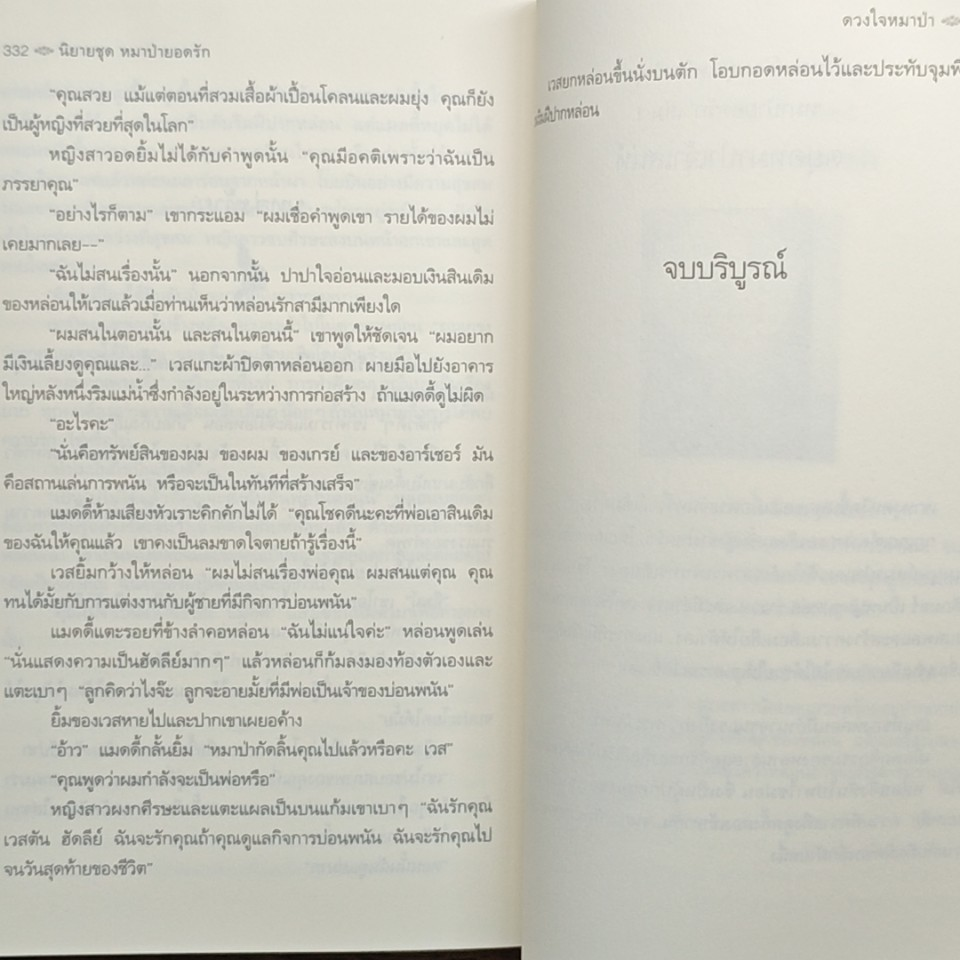 332 นิยายชุด หมาป่ายอดรัก
“คุณสวย แม้แต่ตอนที่สวมเสื้อผ้าเปื้อนโคลนและผมยุ่ง คุณก็ยัง
เป็นผู้หญิงที่สวยที่สุดในโลก”
หญิงสาวอดยิ้มไม่ได้กับคำพูดนั้น “คุณมีอคติเพราะว่าฉันเป็น
ภรรยาคุณ”
“อย่างไรก็ตาม” เขากระแอม “ผมเชื่อคำพูดเขา รายได้ของผมไม่
เคยมากเลย--”
“ฉันไม่สนเรื่องนั้น” นอกจากนั้น ปาปาใจอ่อนและมอบเงินสินเดิม
ของหล่อนให้เวสแล้วเมื่อท่านเห็นว่าหล่อนรักสามีมากเพียงใด
“ผมสนในตอนนั้น และสนในตอนนี้” เขาพูดให้ชัดเจน “ผมอยาก
มีเงินเลี้ยงดูคุณและ...” เวสแกะผ้าปิดตาหล่อนออก ผายมือไปยังอาคาร
ใหญ่หลังหนึ่งริมแม่น้ำซึ่งกำลังอยู่ในระหว่างการก่อสร้าง ถ้าแมดดี้ดูไม่ผิด
“อะไรคะ”
“นั่นคือทรัพย์สินของผม ของผม ของเกรย์ และของอาร์เชอร์ มัน
คือสถานเล่นการพนัน หรือจะเป็นในทันทีที่สร้างเสร็จ”
แมดดี้ห้ามเสียงหัวเราะคิกคักไม่ได้ “คุณโชคดีนะคะที่พ่อเอาสินเดิม
ของฉันให้คุณแล้ว เขาคงเป็นลมขาดใจตายถ้ารู้เรื่องนี้”
เวสยิ้มกว้างให้หล่อน “ผมไม่สนเรื่องพ่อคุณ ผมสนแต่คุณ คุณ
ทนได้มั้ยกับการแต่งงานกับผู้ชายที่มีกิจการบ่อนพนัน”
แมดดี้แตะรอยที่ข้างลำคอหล่อน “ฉันไม่แน่ใจค่ะ” หล่อนพูดเล่น
“นั่นแสดงความเป็นฮัดลีย์มากๆ” แล้วหล่อนก็ก้มลงมองท้องตัวเองและ
แตะเบาๆ “ลูกคิดว่าไงจ๊ะ ลูกจะอายมั้ยที่มีพ่อเป็นเจ้าของบ่อนพนัน”
ยิ้มของเวสหายไปและปากเขาเผยอค้าง
“อ้าว” แมดดี้กลั้นยิ้ม “หมาป่ากัดลิ้นคุณไปแล้วหรือคะ เวส”
“คุณพูดว่าผมกำลังจะเป็นพ่อหรือ”
หญิงสาวผงกศีรษะและแตะแผลเป็นบนแก้มเขาเบาๆ “ฉันรักคุณ
เวสตัน ฮัดลีย์ ฉันจะรักคุณถ้าคุณดูแลกิจการบ่อนพนัน ฉันจะรักคุณไป
จนวันสุดท้ายของชีวิต”
ดวงใจหมาป่า
เวสยกหล่อนขึ้นนั่งบนตัก โอบกอดหล่อนไว้และประทับจุมพิ
ริมฝีปากหล่อน
จบบริบูรณ์